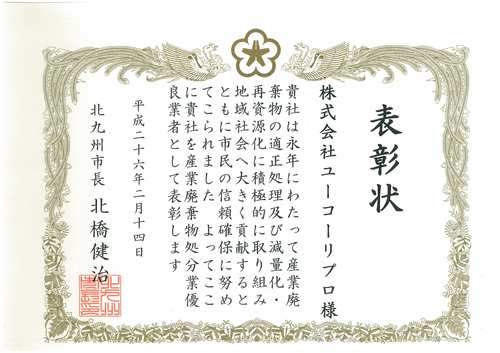 表彰状
株式会社ユーコーリプロ様
貴社は永年にわたって産業廃
棄物の適正処理及び減量化・
再資源化に積極的に取り組み
地域社会へ大きく貢献すると
ともに市民の信頼確保に努め
てこられました よってここ
に貴社を産業廃棄物処分業優
良業者として表彰します
平成二十六年二月十四日
北九州市長 北橋健治